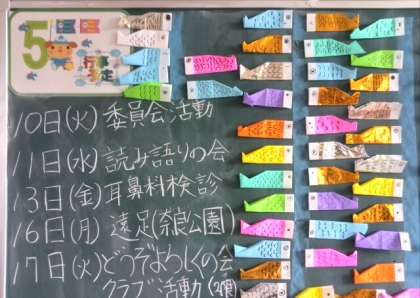 5
行事予定
10日(火)委員会活動
11日(水)読み語りの会
13日(金)耳鼻科検診
16日(月)遠足(奈良公園)
17日(火)どうぞよろしくの会
クラブ活動(2限)